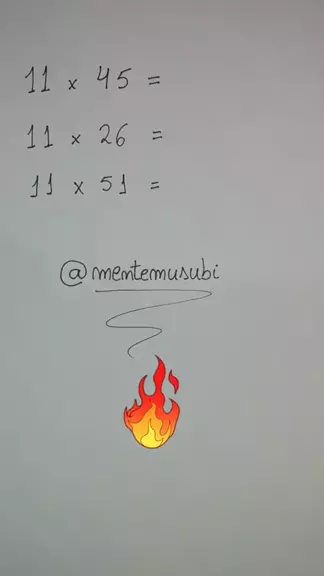 11 x 45 =
11 x 26 =
11 x 51 =
@mentemusubi